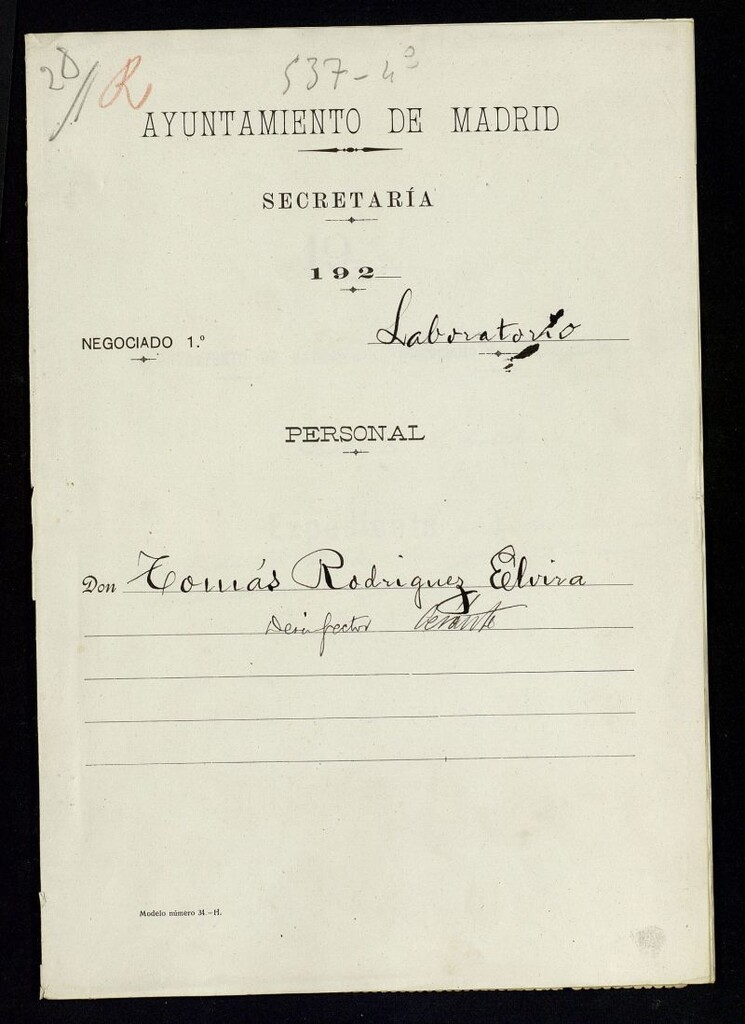 28/1 R
537-4º
AYUNTAMIENTO DE MADRID
SECRETARÍA
192
NEGOCIADO 1.º Laboratorio
PERSONAL
Don Tomás Rodriguez Elvira
Desinfector
Modelo número 34.-H.